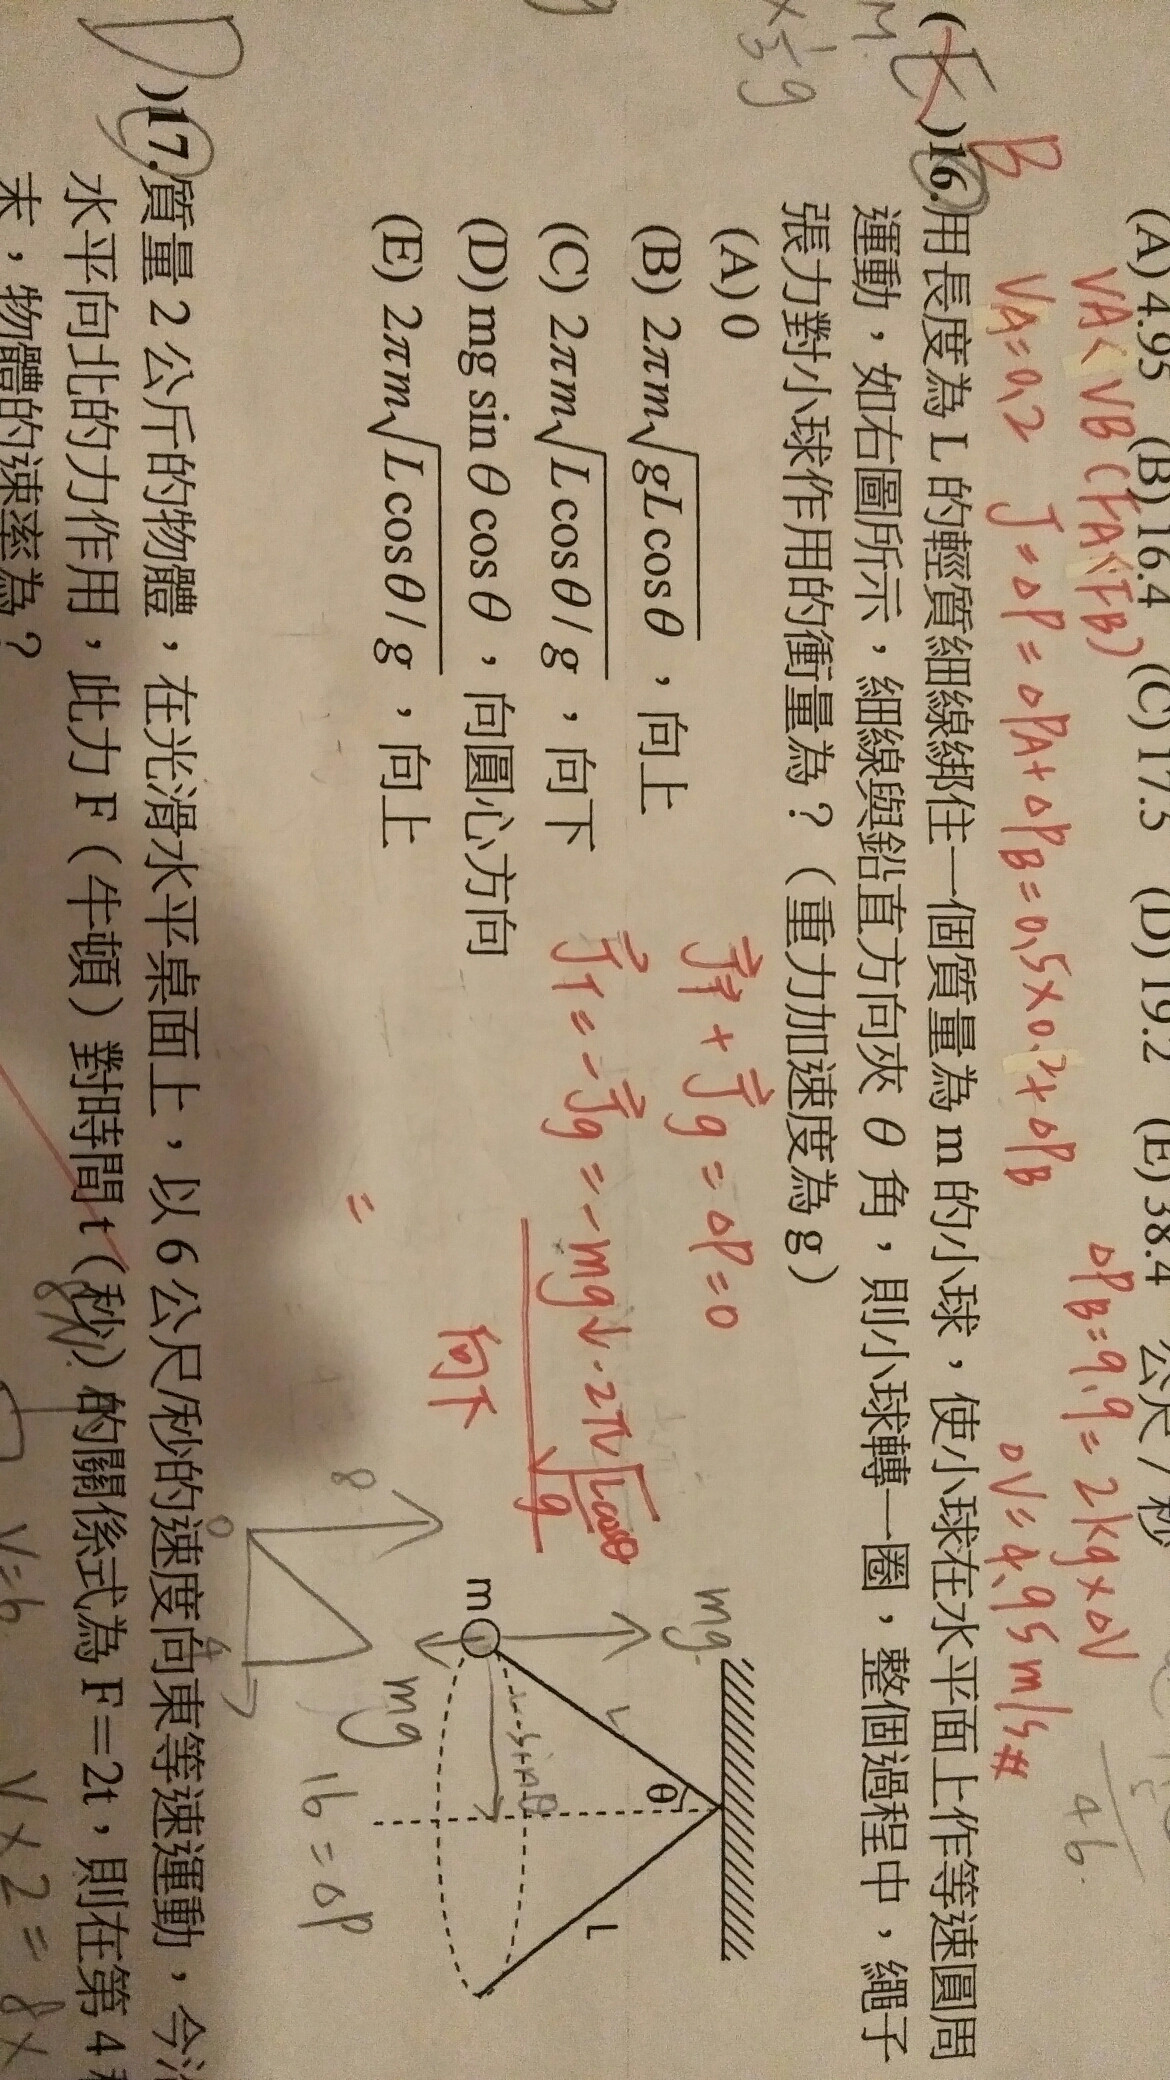 (A) 4.95 (B) 16.4 (C) 17.5 (D) 19.2 (E) 38.4 公尺/秒
VA< VB (FA<FB)
ΔPB=9.9=2kg×ΔV
VA=0.2 J=ΔP=ΔPA+ΔPB=0.5×0.2+ΔPB
ΔV=4.95 m/s #
B
(E)16.用長度為 L 的輕質細線綁住一個質量為 m 的小球,使小球在水平面上作等速圓周
運動,如右圖所示,細線與鉛直方向夾 θ 角,則小球轉一圈,整個過程中,繩子
張力對小球作用的衝量為?(重力加速度為 g)
(A) 0
(B) 2πm√gLcosθ,向上
(C) 2πm√Lcosθ/g,向下
(D) mg sin θ cos θ,向圓心方向
(E) 2πm√Lcosθ/g,向上
+ Jg = ΔP=0
JT = -Jg = -mg↓·2π√Lcosθ/g
向下
=
mg
θ
L
L
m
mg
8
0
4
16=ΔP
D)17.質量 2 公斤的物體,在光滑水平桌面上,以 6 公尺/秒的速度向東等速運動,今
水平向北的力作用,此力 F(牛頓)對時間 t(秒)的關係式為 F=2t,則在第 4
末,物體的速率為?
8N
V=6
V×2=8×